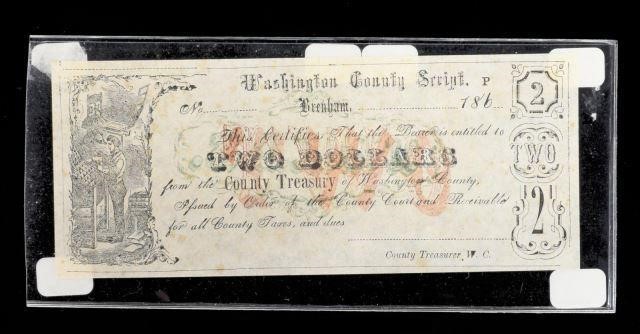 Washington County Script. P
No. Brenham, 186
2
This Certifies That the Bearer is entitled to
TWO DOLLARS
TWO
from the County Treasury of Washington County,
Issued by Order of the County Court and Receivable
for all County Taxes, and dues
2
County Treasurer, W. C.